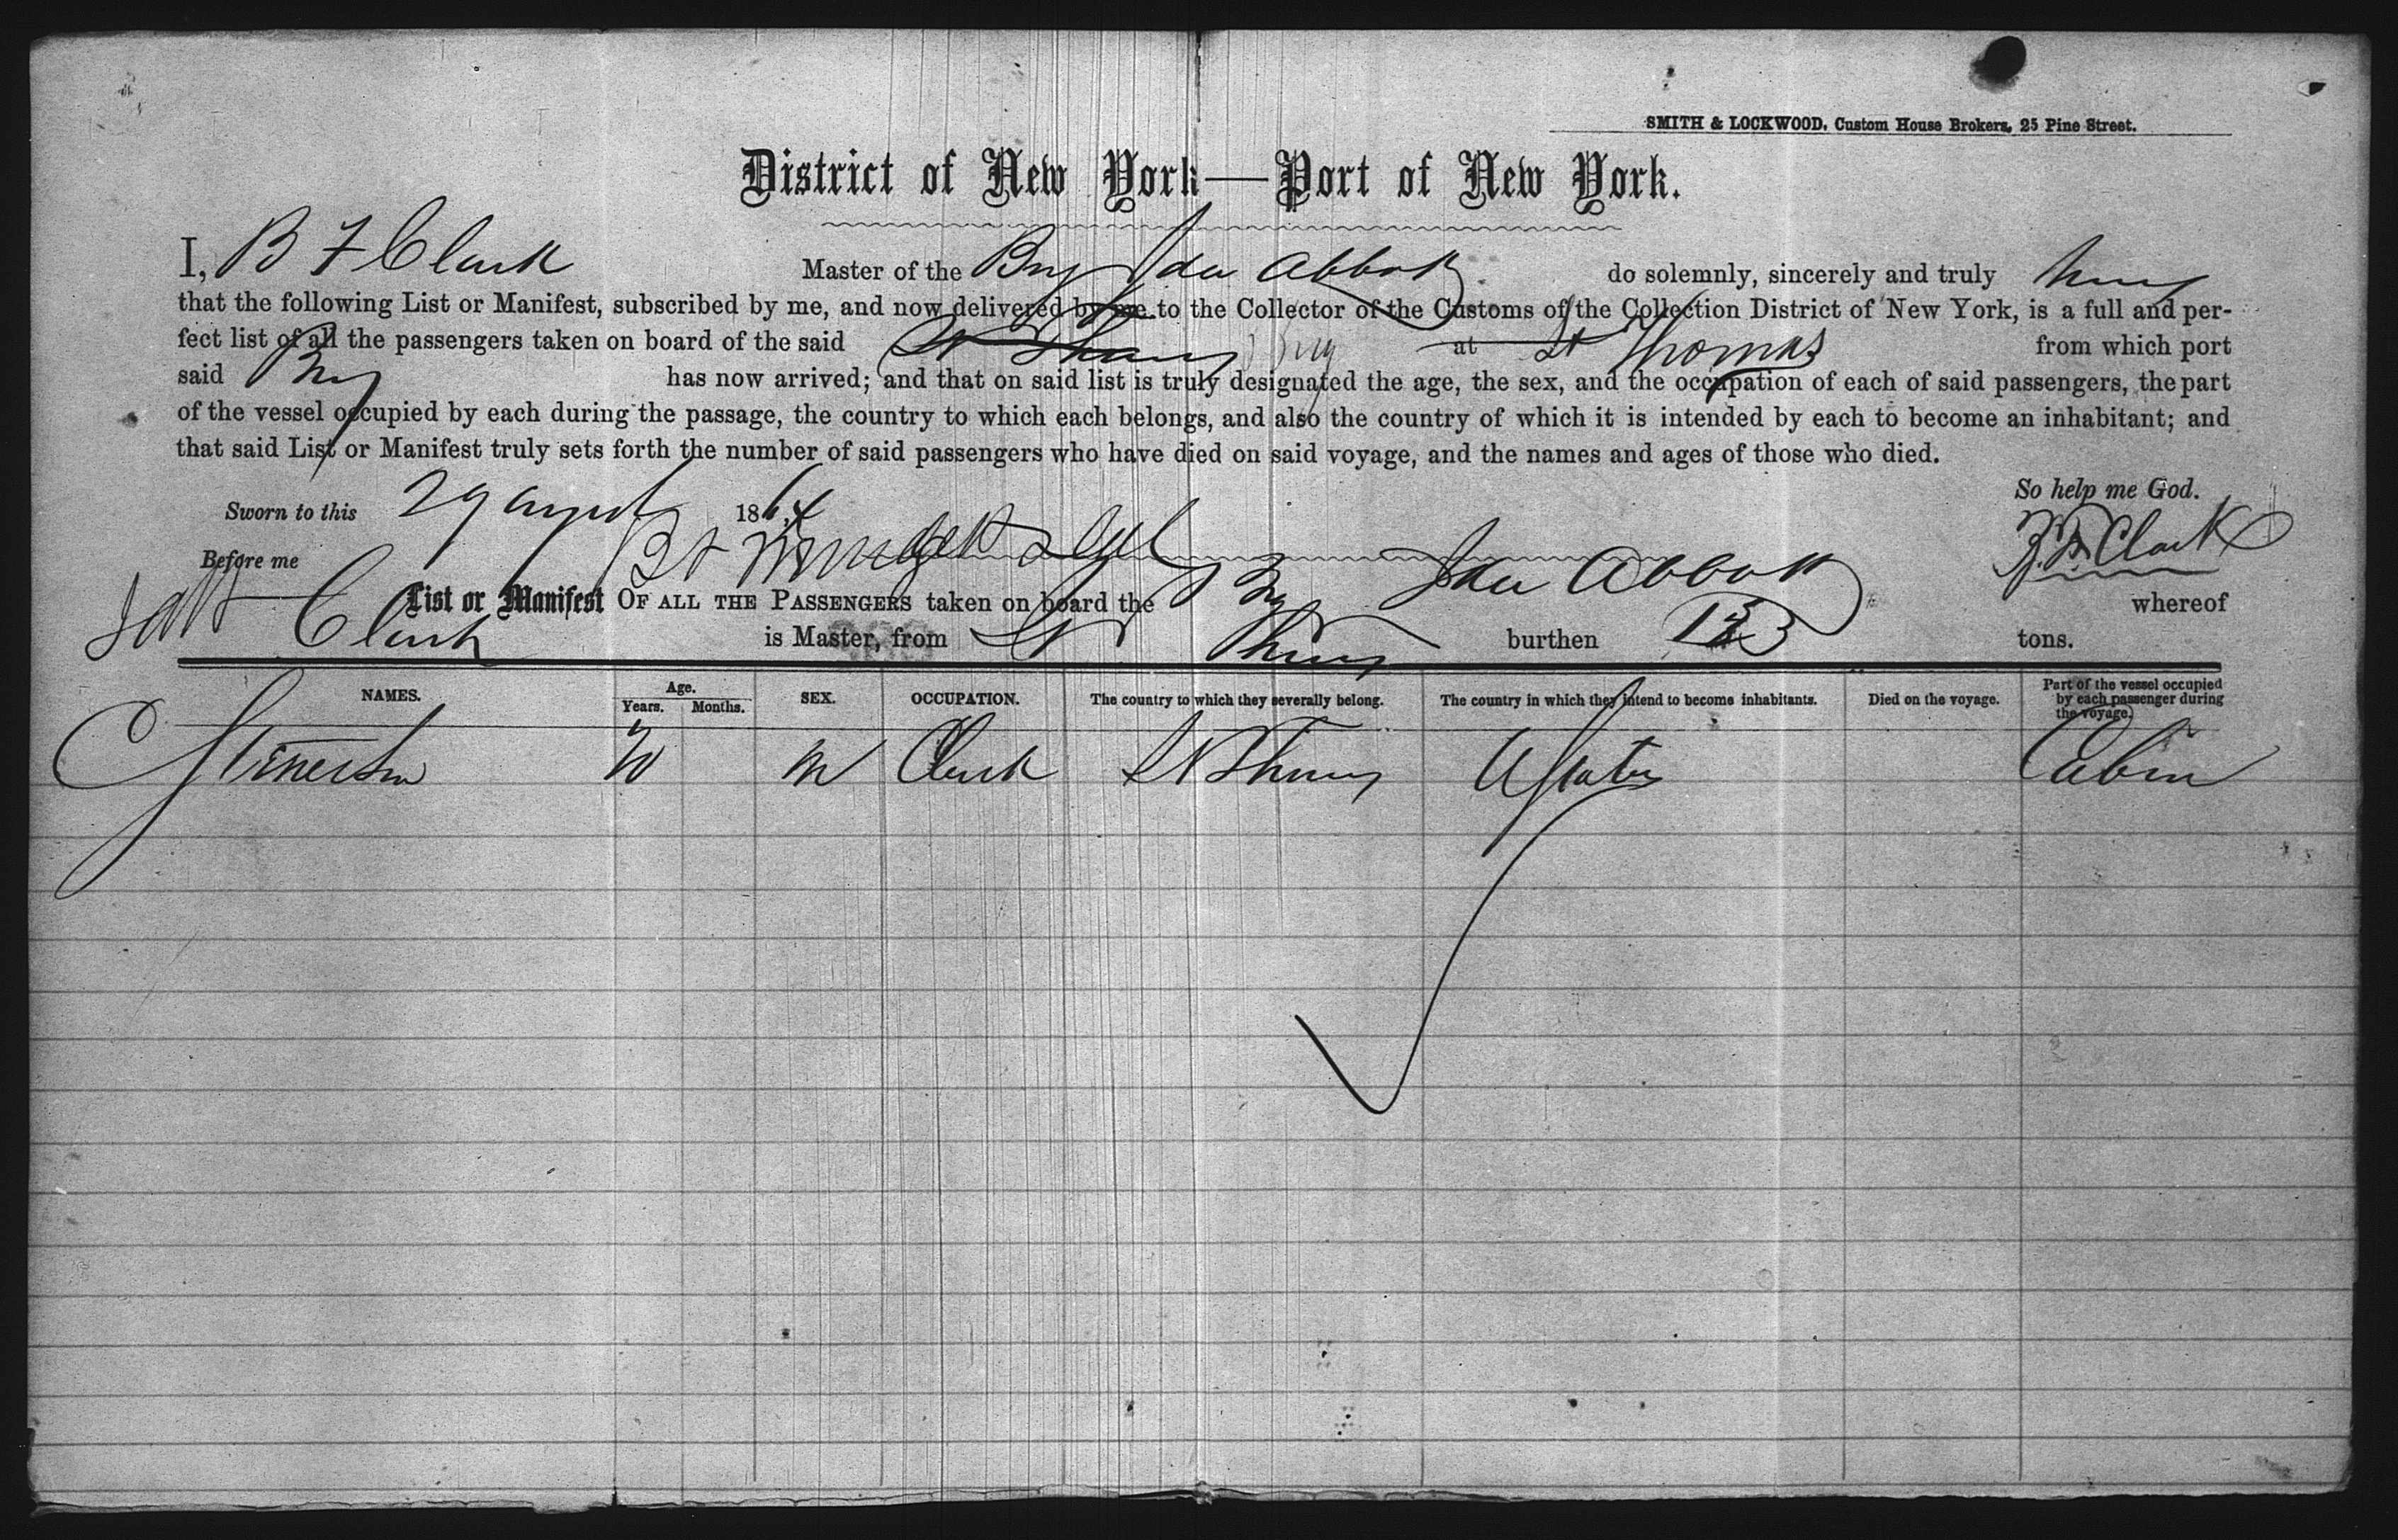 SMITH & LOCKWOOD, Custom House Brokers, 25 Pine Street.
District of New York—Port of New York.
I, B F Clark Master of the Brig Ida Abbott do solemnly, sincerely and truly
that the following List or Manifest, subscribed by me, and now delivered by me to the Collector of the Customs of the Collection District of New York, is a full and per-
fect list of all the passengers taken on board of the said St Thomas Brig at St Thomas from which port
said Brig has now arrived; and that on said list is truly designated the age, the sex, and the occupation of each of said passengers, the part
of the vessel occupied by each during the passage, the country to which each belongs, and also the country of which it is intended by each to become an inhabitant; and
that said List or Manifest truly sets forth the number of said passengers who have died on said voyage, and the names and ages of those who died.
So help me God.
Sworn to this 29 August 1864
Before me B. F. Clark
List or Manifest OF ALL THE PASSENGERS taken on board the Brig Ida Abbott whereof
Clark is Master, from St Thomas burthen tons.
NAMES. Age. Years. Months. SEX. OCCUPATION. The country to which they severally belong. The country in which they intend to become inhabitants. Died on the voyage. Part of the vessel occupied by each passenger during the voyage.
M Clerk St Thomas U States Cabin